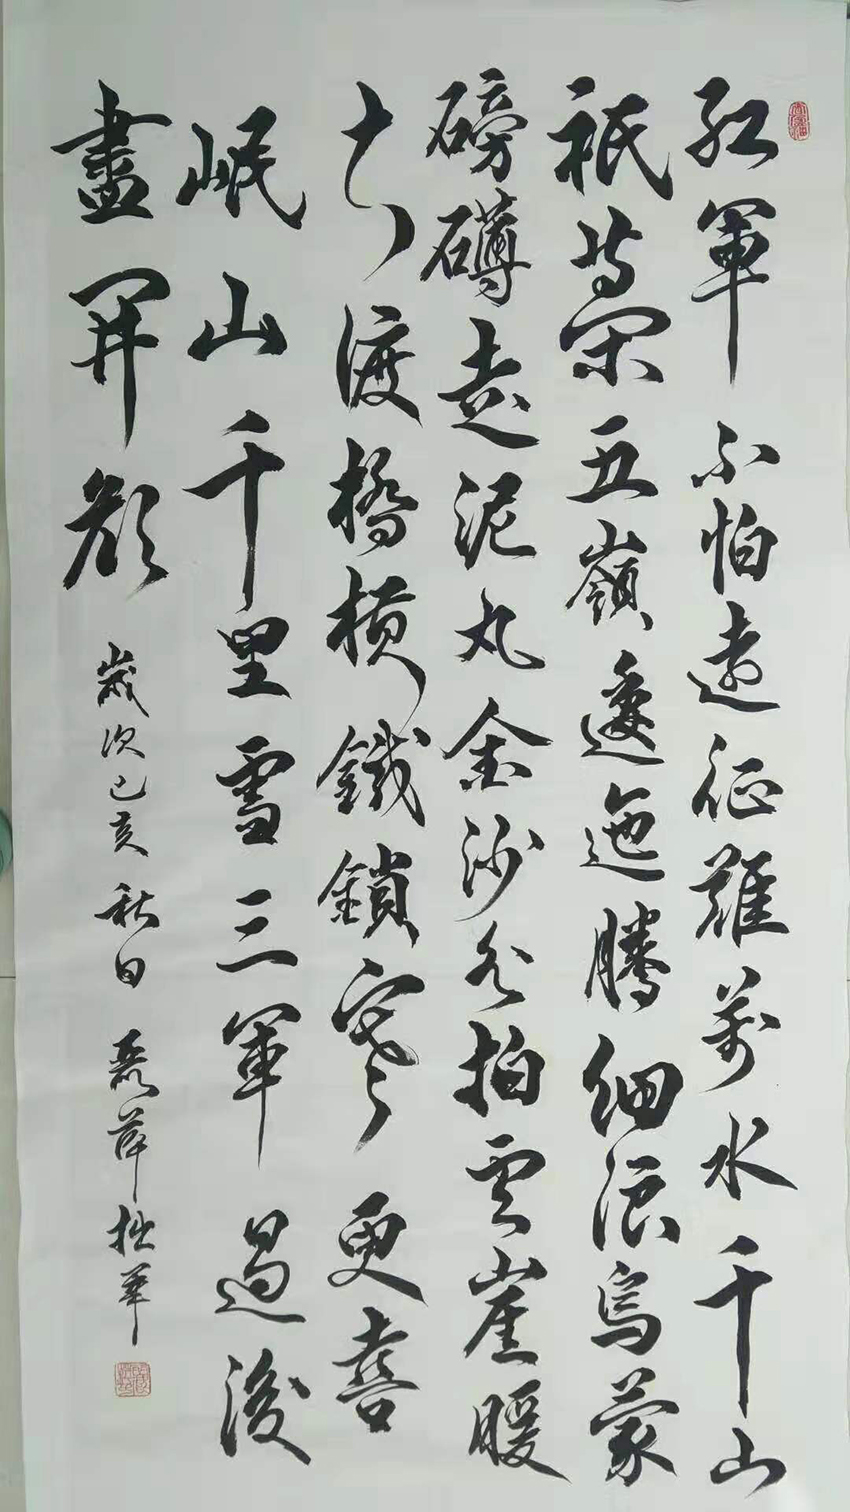 紅軍不怕遠征難萬水千山
祇等閑五嶺逶迤騰細浪烏蒙
磅礴走泥丸金沙水拍云崖暖
大渡橋橫鐵鎖寒更喜
岷山千里雪三軍過後
盡開顏
歲次己亥秋日 薛拙筆